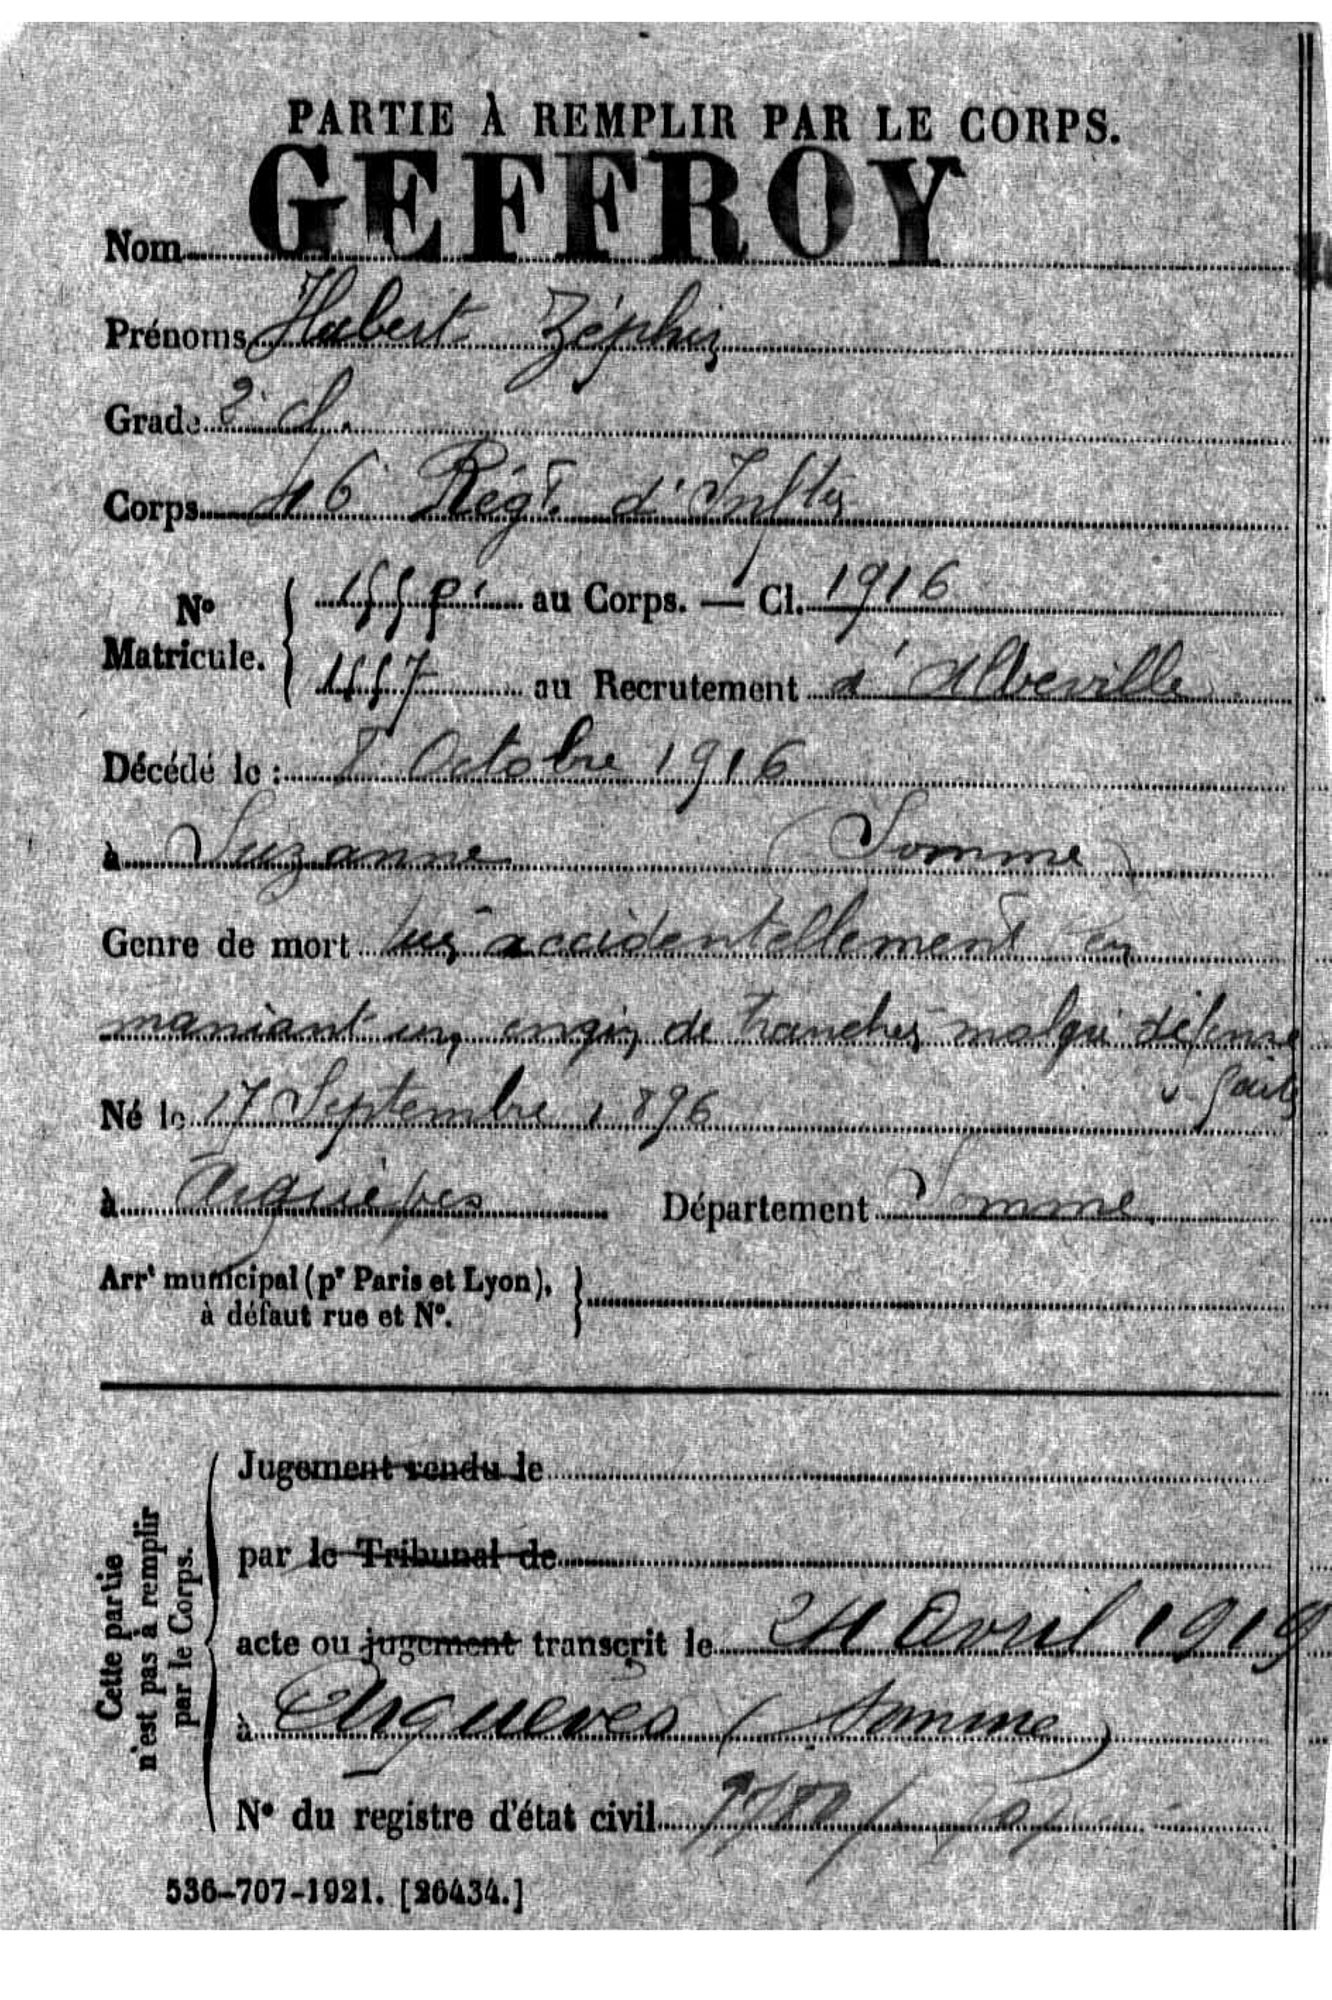 PARTIE À REMPLIR PAR LE CORPS.
Nom GEFFROY
Prénoms Hubert Zéphir
Grade 2e cl.
Corps 46 Régt. d'Inftie
No Matricule. au Corps. — Cl. 1916
au Recrutement d'Abbeville
Décédé le : 8 Octobre 1916
à Suzanne (Somme)
Genre de mort tué accidentellement en
maniant un engin de tranchée malgré défense
faite
Né le 17 Septembre 1896
à Arguèves Département Somme
Arrt municipal (pr Paris et Lyon),
à défaut rue et No.
Cette partie
n'est pas à remplir
par le Corps.
Jugement rendu le
par le Tribunal de
acte ou jugement transcrit le 24 Avril 1919
à Arguèves (Somme)
No du registre d'état civil
536-707-1921. [26434.]